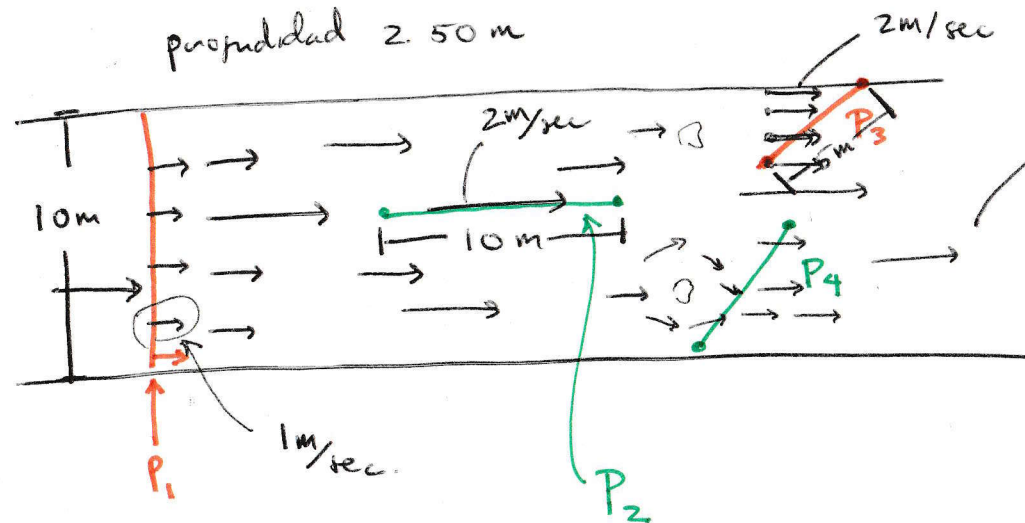 profudidad 2.50 m
2m/sec
2m/sec
P3
5m
10m
10m
P4
1m/sec.
P1
P2